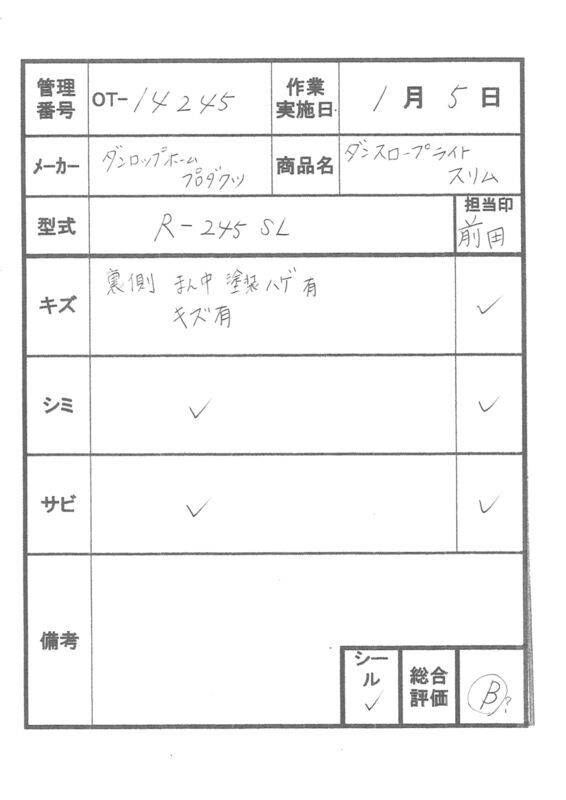 管理番号 OT-14245 作業実施日 1月5日
メーカー ダンロップホームプロダクツ 商品名 ダンスロープライトスリム
型式 R-245 SL 担当印 前田
キズ 裏側 まん中 塗装ハゲ有 ✓
キズ有
シミ ✓ ✓
サビ ✓ ✓
備考
シール ✓ 総合評価 B?